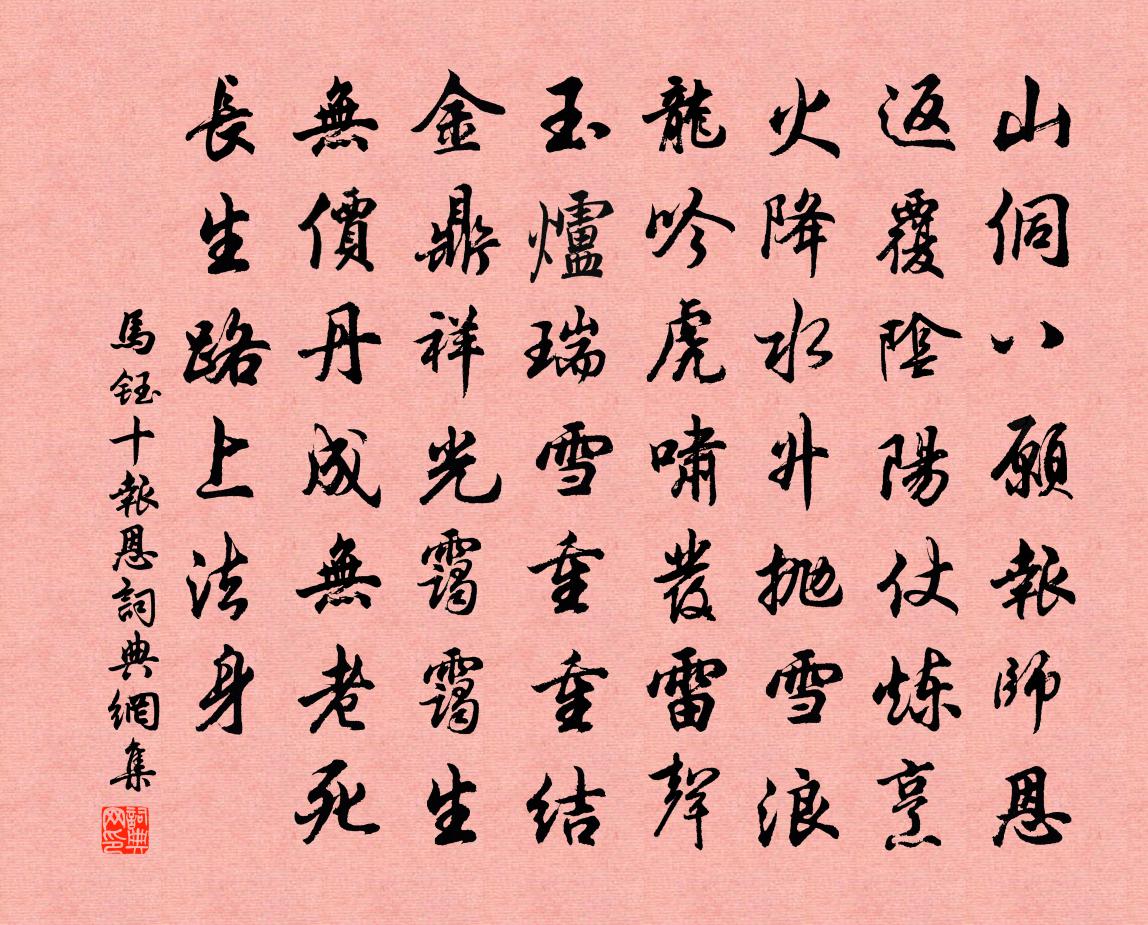 山侗八願報師恩
返覆陰陽仗炼烹
火降水升拋雪浪
龍吟虎嘯發雷聲
玉爐瑞雪重重結
金鼎祥光靄靄生
無價丹成無老死
長生路上法身
馬鈺十報恩詞典網集
詞典網印